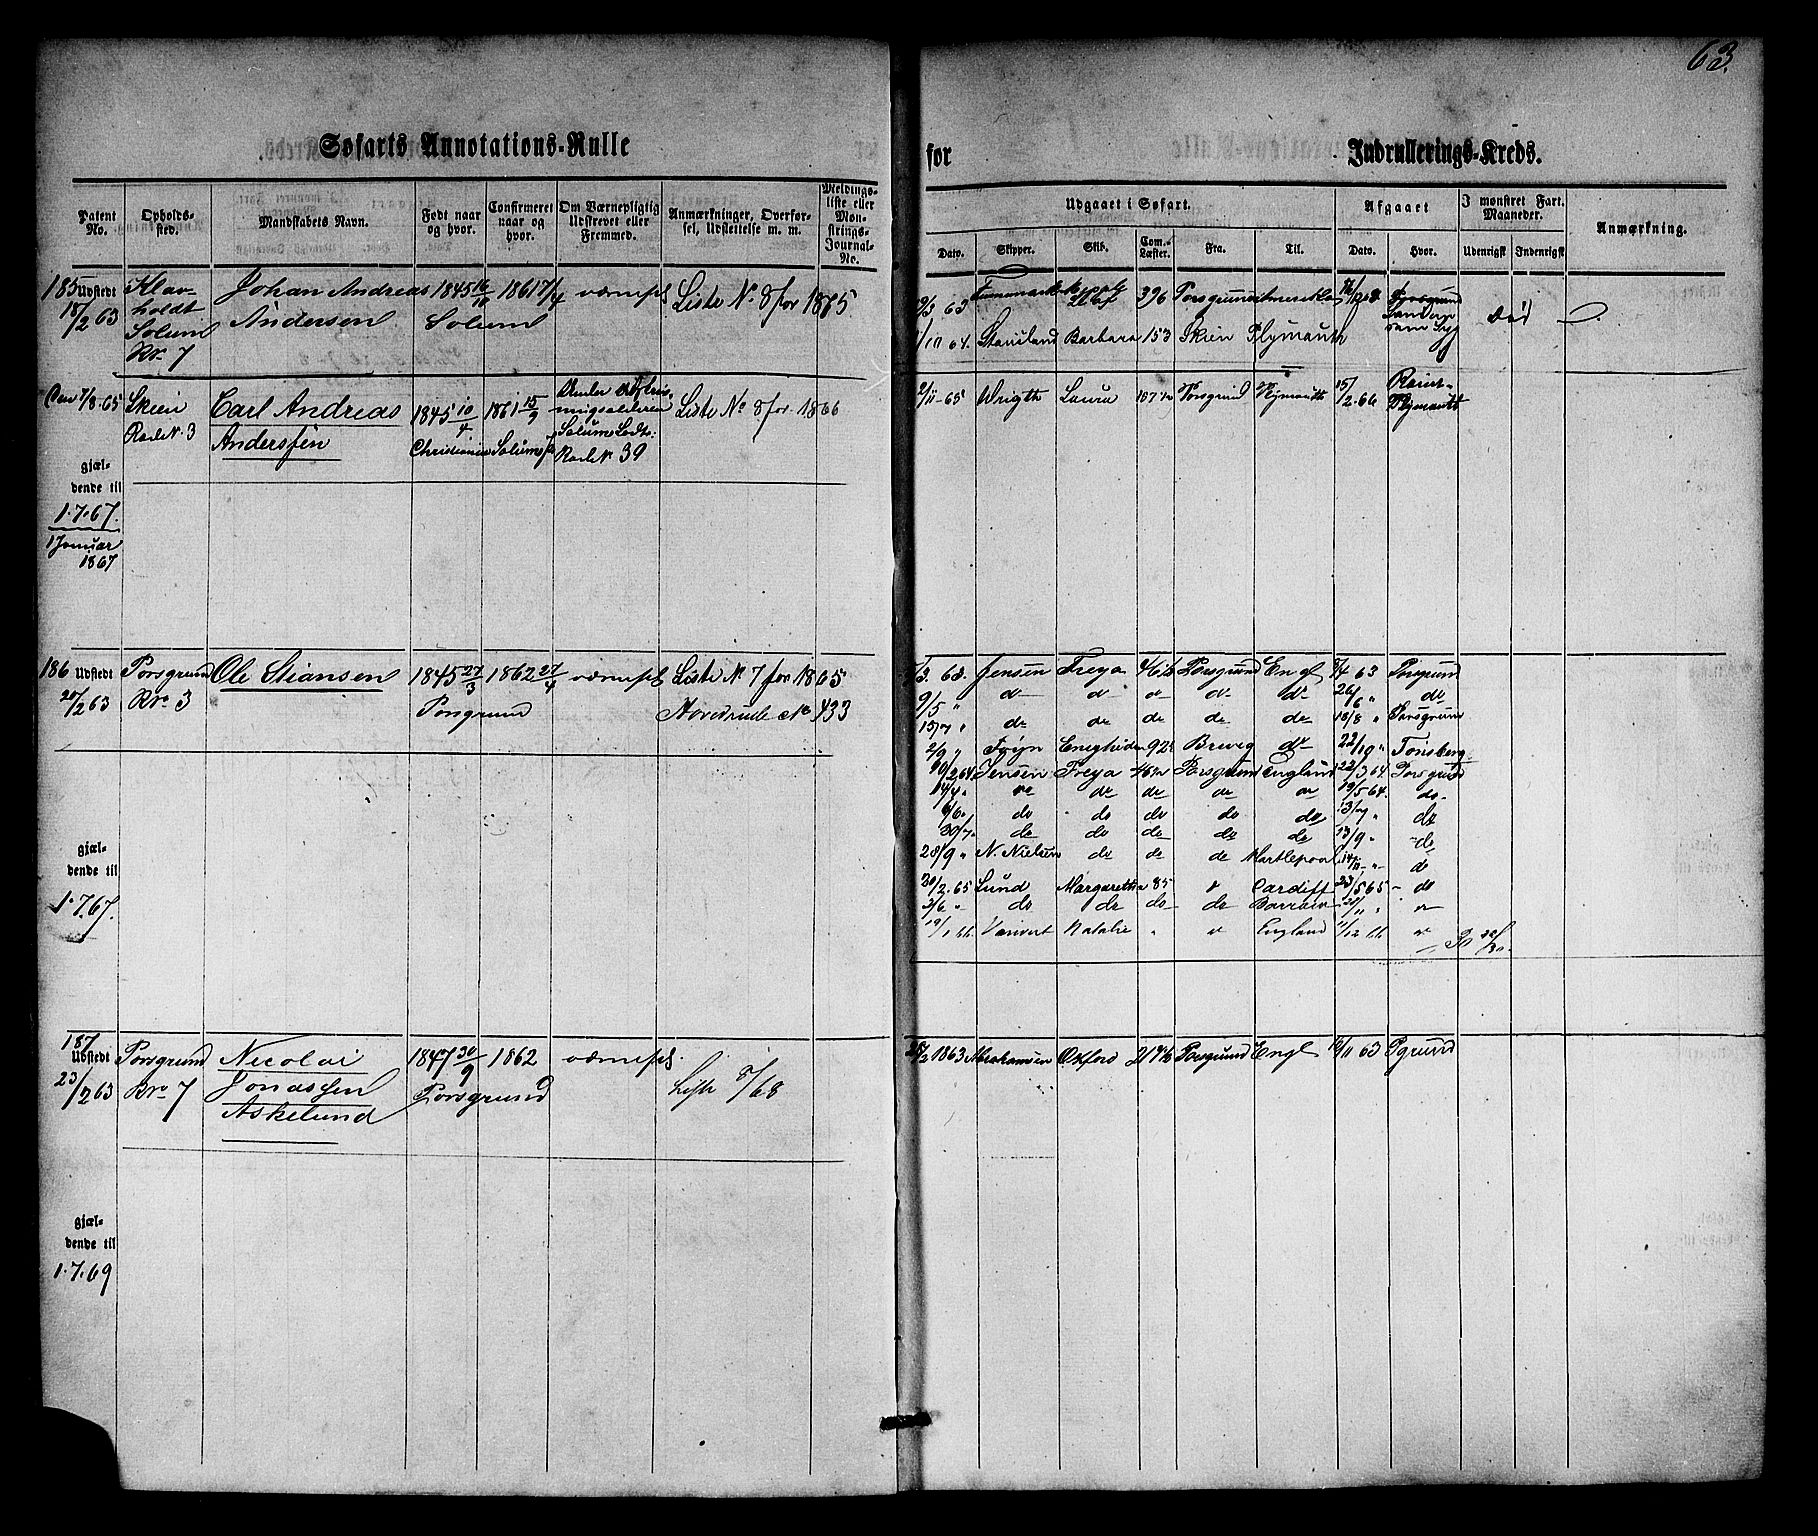 63.
Søfarts Annotations-Rulle for Indrullerings-Kreds.
Patent No. Opholds-sted. Mandskabets Navn. Født naar og hvor. Confirmeret naar og hvor. Om Værnepligtig Udskrevet eller Fremmed. Anmærkninger, Overførsel, Udslettelse m. m. Meldings-liste eller Mønstrings-Journal-No.
Udgaaet i Søfart. Afgaaet I mønstret Fart. Maaneder. Anmærkning.
Dato. Skipper. Skib. Com. Læster. Fra. Til. Dato. Hvor. Udenrigsk Indenrigsk
185 Udstedt 18/2 63
Klavholdt Solum Rº 7
Johan Andreas Andersen
1845 16/10 Solum
1861 7/4
værnepl
Liste Nº 8 for 1875
63 396 Porsgrund
1/10 64. Stousland Barbara 153 Skien Plymouth
død
Den 7/8 65
Skien Rode Nº 3
Carl Andreas Anderssen
1845 10/4 Christiania
1861 15/9 Solum
Solums Rode Nº 39
Liste Nº 8 for 1866
2/11 65 Wrigth Laura 107 Porsgrund Plymouth 15/2 66 Plymouth
gjæl-
dende til
1.7.67.
1 Januar
1867
186 Udstedt 27/2 63
Porsgrund Rº 3
Ole Stiansen
1845 27/3 Porsgrund
1862 27/4
værnepl
Liste Nº 7 for 1865
Hovedrulle Nº 433
3. 63. Jensen Freya 46½ Porsgrund Engl /4 63 Porsgrund
9/5 " do do do do do 26/6 " do
15/7 " do do do do do 18/8 " Porsgrund
2/9 " Føyn Enigheden 92 Brevig do 22/10 " Tønsberg
10/2 64 Jensen Freya 46½ Porsgrund England 22/3 64 Porsgrund
14/4 " do do do do do 19/5 64. do
6/6 " do do do do do 13/7 " do
30/7 " do do do do do 13/9 " do
28/9 " N. Nielsen do do do Hartlepool do
20/2 65 Lund Margaretha 85 Cardiff 23/5 65 do
2/6 " do do do do
19/1 66. Natalie " England 11/12 66
gjæl-
dende til
1.7.67.
187 Udstedt 23/2 63
Porsgrund Rº 7
Nicolai Jonassen Askelund
1847 30/9 Porsgrund
1862
værnepl.
Liste 8/68
25/2 1863 Abrahamsen Oxford 217½ Porsgrund Engl /11 63 Pgrund
gjæl-
dende til
1.7.69